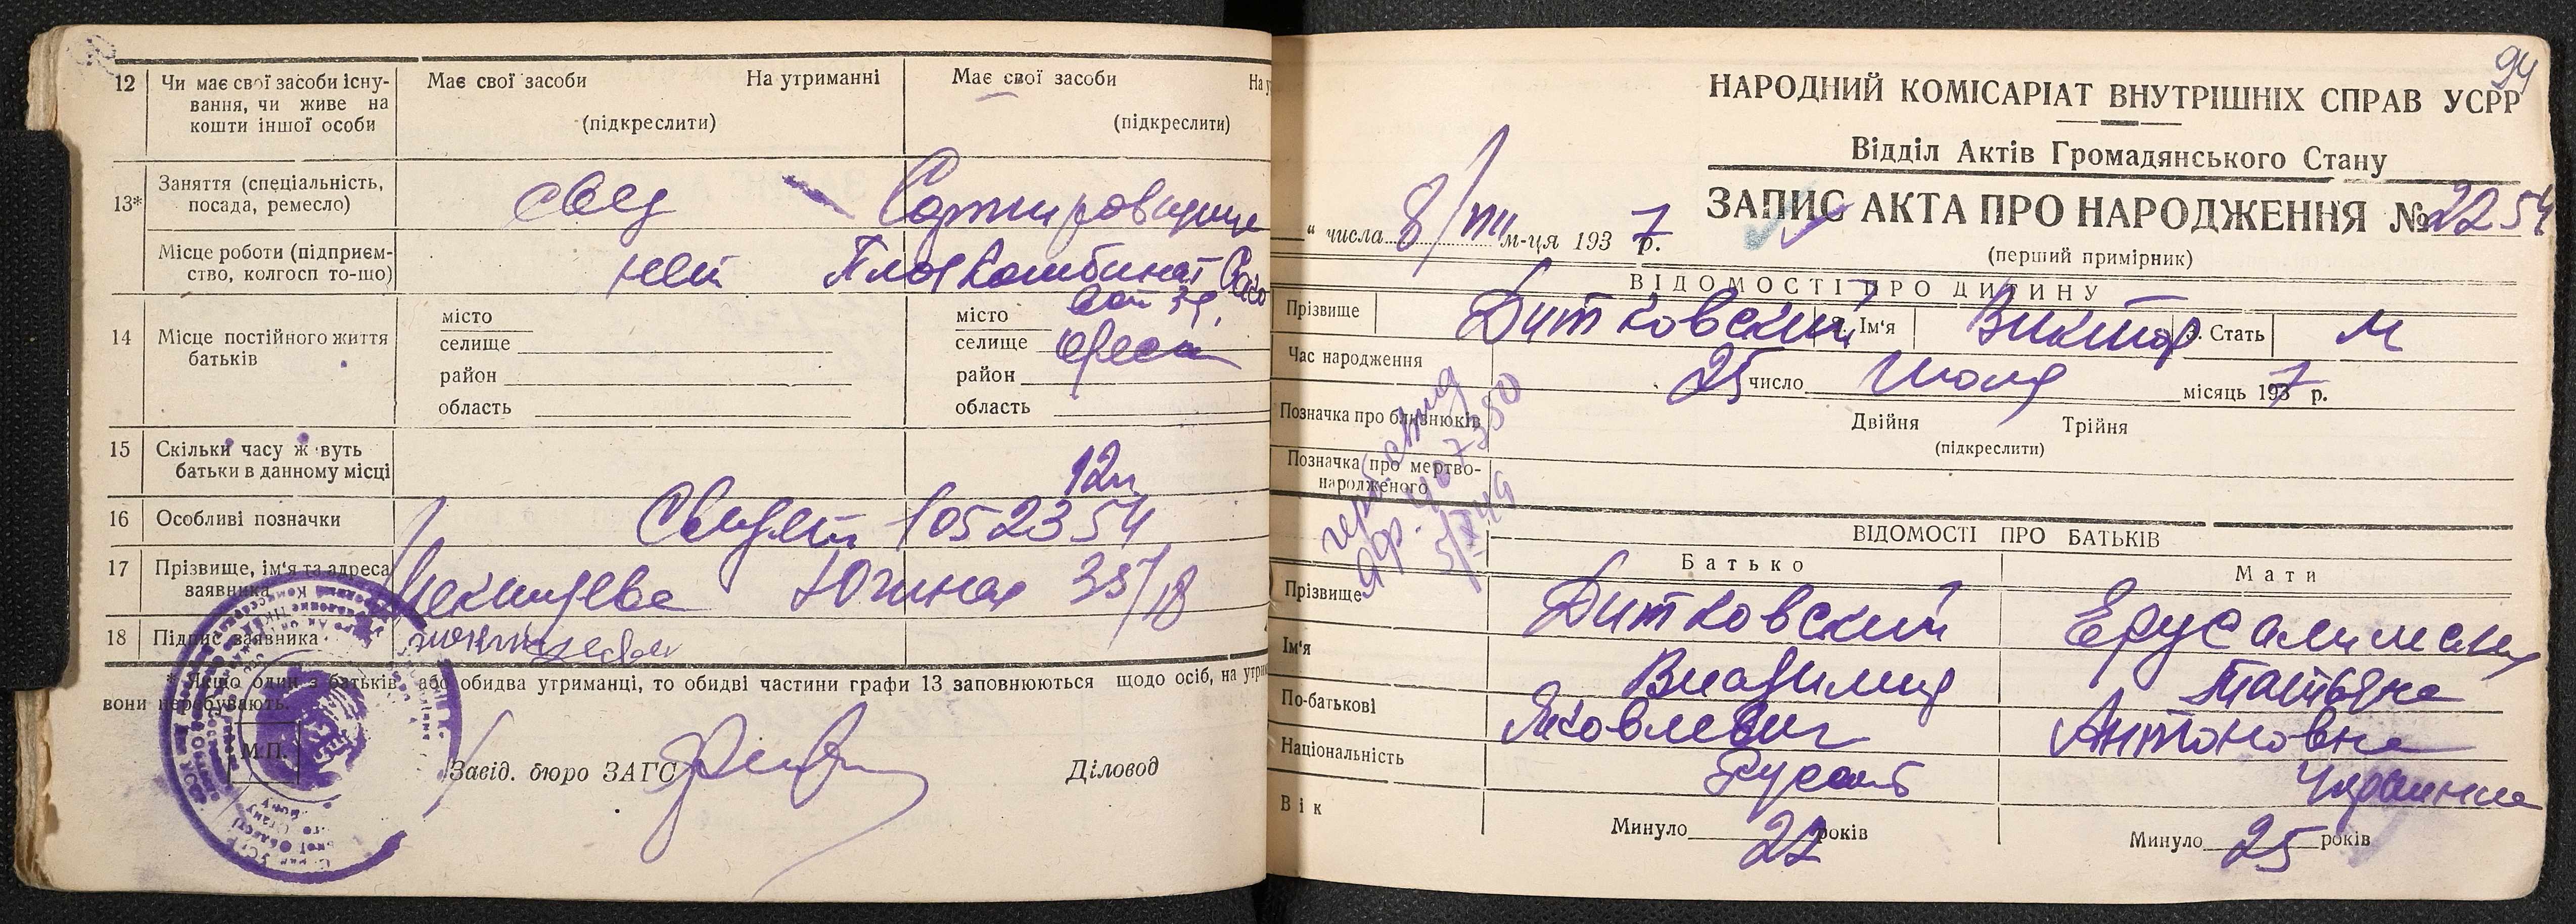 12 Чи має свої засоби існу-
вання, чи живе на
кошти іншої особи
Має свої засоби На утриманні
(підкреслити)
Має свої засоби На у
(підкреслити)
13* Заняття (спеціальність,
посада, ремесло)
Сортировщица
Місце роботи (підприєм-
ство, колгосп то-що)
14 Місце постійного життя
батьків
місто
селище
район
область
місто
селище Одесса
район
область
15 Скільки часу ж вуть
батьки в данному місці
12
16 Особливі позначки
1052354
17 Прізвище, ім'я та адреса
заявника
Южная 35/18
18 Підпис заявника
* Якщо один з батьків або обидва утриманці, то обидві частини графи 13 заповнюються щодо осіб, на утрим
вони перебувають.
М.П.
Завід. бюро ЗАГС
Діловод
94
НАРОДНИЙ КОМІСАРІАТ ВНУТРІШНІХ СПРАВ УСРР
Відділ Актів Громадянського Стану
ЗАПИС АКТА ПРО НАРОДЖЕННЯ № 2254
(перший примірник)
" числа 8/VIII м-ця 1937 р.
ВІДОМОСТІ ПРО ДИТИНУ
Прізвище Дитковский 2. Ім'я Виктор 3. Стать м
Час народження 25 число Июля місяць 1937 р.
Позначка про близнюків Двійня Трійня
(підкреслити)
Позначка про мертво-
народженого
ВІДОМОСТІ ПРО БАТЬКІВ
Батько Мати
Прізвище Дитковский
Ім'я Владимир Татьяна
По-батькові Яковлевич Антоновна
Національність
Вік Минуло 22 років Минуло 25 років